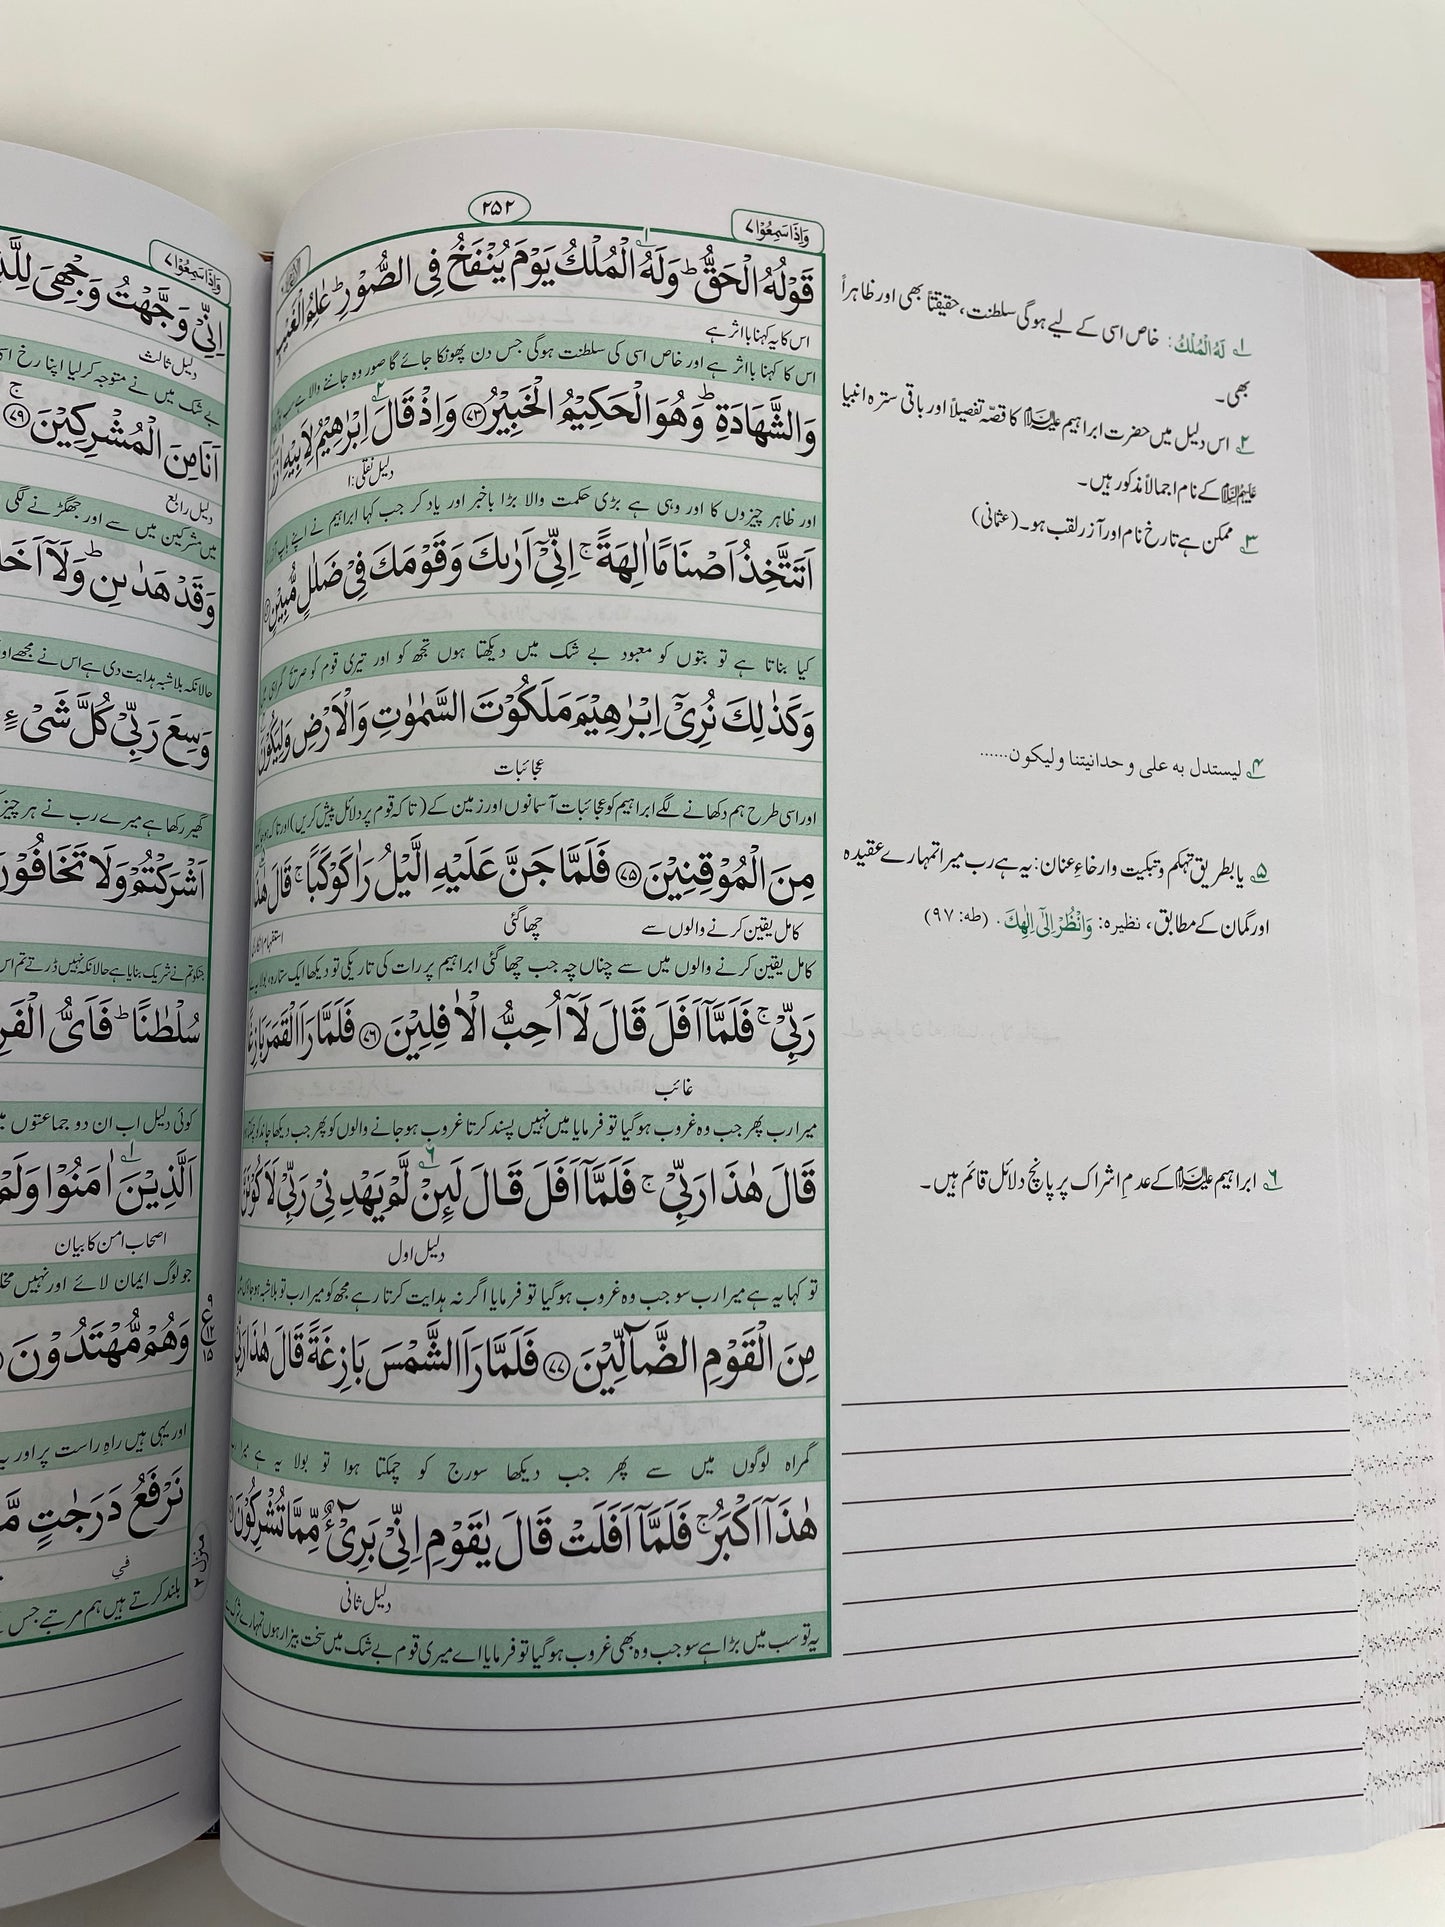 ۲۵۲
وَاِذَا سَمِعُوْا ۷
قَوْلُهُ الْحَقُّ ؕ وَلَهُ الْمُلْكُ یَوْمَ یُنْفَخُ فِی الصُّوْرِ ؕ عٰلِمُ الْغَیْبِ
اس کا یہ کہنا بااثر ہے
اس کا کہنا بااثر ہے اور خاص اسی کی سلطنت ہوگی جس دن پھونکا جائے گا صور وہ جاننے والا ہے
وَالشَّهَادَةِ ؕ وَهُوَ الْحَكِیْمُ الْخَبِیْرُ ﴿۷۳﴾ وَاِذْ قَالَ اِبْرٰهِیْمُ لِاَبِیْهِ
دلیل نقلی:۱
اور ظاہر چیزوں کا اور وہی ہے بڑی حکمت والا بڑا باخبر اور یاد کر جب کہا ابراہیم نے اپنے باپ
اَتَتَّخِذُ اَصْنَامًا اٰلِهَةً ۚ اِنِّیْۤ اَرٰىكَ وَقَوْمَكَ فِیْ ضَلٰلٍ مُّبِیْنٍ
کیا بناتا ہے تو بتوں کو معبود بے شک میں دیکھتا ہوں تجھ کو اور تیری قوم کو صریح گمراہی
وَكَذٰلِكَ نُرِیْۤ اِبْرٰهِیْمَ مَلَكُوْتَ السَّمٰوٰتِ وَالْاَرْضِ وَلِیَكُوْنَ
عجائبات
اور اسی طرح ہم دکھانے لگے ابراہیم کو عجائبات آسمانوں اور زمین کے (تاکہ قوم پر دلائل پیش کریں) اور تاکہ
مِنَ الْمُوْقِنِیْنَ ﴿۷۵﴾ فَلَمَّا جَنَّ عَلَیْهِ الَّیْلُ رَاٰ كَوْكَبًا ۚ قَالَ هٰذَا
کامل یقین کرنے والوں سے چھا گئی
کامل یقین کرنے والوں میں سے چناں چہ جب چھا گئی ابراہیم پر رات کی تاریکی تو دیکھا ایک ستارہ، بولا
رَبِّیْ ۚ فَلَمَّاۤ اَفَلَ قَالَ لَاۤ اُحِبُّ الْاٰفِلِیْنَ ﴿۷۶﴾ فَلَمَّا رَاَ الْقَمَرَ بَازِغًا
غائب
میرا رب پھر جب وہ غروب ہوگیا تو فرمایا میں نہیں پسند کرتا غروب ہوجانے والوں کو پھر جب دیکھا چاند کو
قَالَ هٰذَا رَبِّیْ ۚ فَلَمَّاۤ اَفَلَ قَالَ لَىِٕنْ لَّمْ یَهْدِنِیْ رَبِّیْ لَاَكُوْنَنَّ
دلیل اول
تو کہا یہ ہے میرا رب سو جب وہ غروب ہوگیا تو فرمایا اگر نہ ہدایت کرتا رہے مجھ کو میرا رب تو بلاشبہ
مِنَ الْقَوْمِ الضَّآلِّیْنَ ﴿۷۷﴾ فَلَمَّا رَاَ الشَّمْسَ بَازِغَةً قَالَ هٰذَا رَبِّیْ
گمراہ لوگوں میں سے پھر جب دیکھا سورج کو چمکتا ہوا تو بولا یہ ہے میرا
هٰذَاۤ اَكْبَرُ ۚ فَلَمَّاۤ اَفَلَتْ قَالَ یٰقَوْمِ اِنِّیْ بَرِیْٓءٌ مِّمَّا تُشْرِكُوْنَ
دلیل ثانی
یہ تو سب میں بڑا ہے سو جب وہ بھی غروب ہوگیا تو فرمایا اے میری قوم بے شک میں سخت بیزار ہوں تمہارے
۱ لَهُ الْمُلْكُ: خاص اسی کے لیے ہوگی سلطنت، حقیقتاً بھی اور ظاہراً
بھی۔
۲ اس دلیل میں حضرت ابراہیم علیہ السلام کا قصّہ تفصیلاً اور باقی سترہ انبیا
علیہم السلام کے نام اجمالاً مذکور ہیں۔
۳ ممکن ہے تارخ نام اور آزر لقب ہو۔ (عثمانی)
۴ لیستدل به علی وحدانیتنا ولیکون......
۵ یا بطریق تہکم و تبکیت وارخاءِ عنان: یہ ہے رب میرا تمہارے عقیدہ
اور گمان کے مطابق، نظیرہ: وَانْظُرْ اِلٰۤی اِلٰهِكَ. (طه: ۹۷)
۶ ابراہیم علیہ السلام کے عدمِ اشراک پر پانچ دلائل قائم ہیں۔
وَاِذَا سَمِعُوْا ۷
اِنِّیْ وَجَّهْتُ وَجْهِیَ لِلَّذِ
دلیل ثالث
بے شک میں نے متوجہ کرلیا اپنا رخ
اَنَا مِنَ الْمُشْرِكِیْنَ ﴿۷۹﴾ ۚ
دلیل رابع
میں مشرکین میں سے اور جھگڑنے لگی
وَقَدْ هَدٰىنِ ؕ وَلَاۤ اَخَا
حالانکہ بلاشبہ ہدایت دی ہے اس نے مجھے اور
وَسِعَ رَبِّیْ كُلَّ شَیْءٍ
گھیر رکھا ہے میرے رب نے ہر چیز
اَشْرَكْتُمْ وَلَا تَخَافُوْنَ
جنکو تم نے شریک بنایا ہے حالانکہ نہیں ڈرتے تم اس
سُلْطٰنًا ؕ فَاَیُّ الْفَرِ
کوئی دلیل اب ان دو جماعتوں
اَلَّذِیْنَ اٰمَنُوْا وَلَمْ
اصحاب امن کا بیان
جو لوگ ایمان لائے اور نہیں
وَهُمْ مُّهْتَدُوْنَ
۹ ع ۱۲ ۱۵
اور یہی ہیں راہِ راست پر اور
نَرْفَعُ دَرَجٰتٍ مَّ
في
بلند کرتے ہیں ہم مرتبے جس
منزل ۲